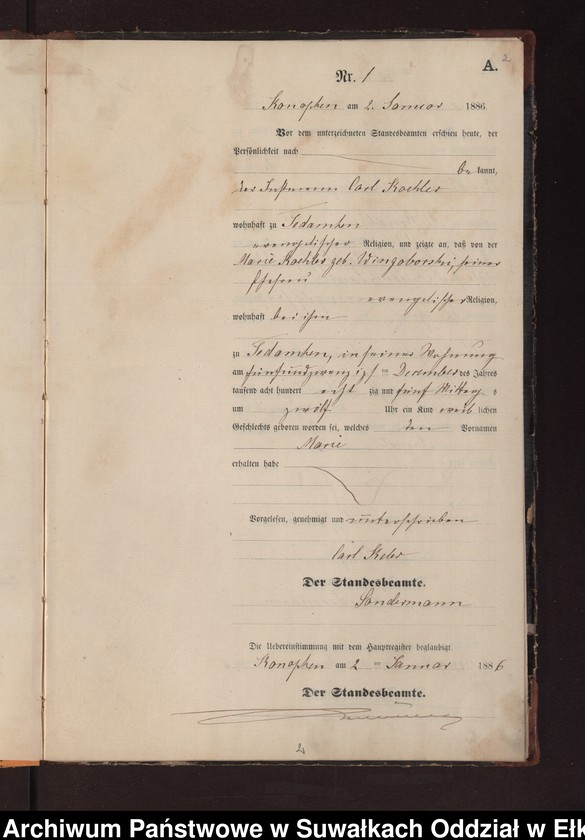 A. 2
Nr. 1
Konopken am 2. Januar 1886.
Vor dem unterzeichneten Standesbeamten erschien heute, der
Persönlichkeit nach
be kannt,
der Instmann Carl Koehler
wohnhaft zu Sedamken
evangelischer Religion, und zeigte an, daß von der
Marie Koehler geb. seiner
Ehefrau
evangelischer Religion,
wohnhaft bei ihm
zu Sedamken, in seiner Wohnung
am fünfundzwanzigsten December des Jahres
tausend acht hundert acht zig und fünf Mittags
um zwölf Uhr ein Kind weib lichen
Geschlechts geboren worden sei, welches den Vornamen
Marie
erhalten habe
Vorgelesen, genehmigt und unterschrieben
Carl Keler
Der Standesbeamte.
Sondermann
Die Uebereinstimmung mit dem Hauptregister beglaubigt.
Konopken am 2 ten Januar 1886
Der Standesbeamte.
2
Archiwum Państwowe w Suwałkach Oddział w Ełk